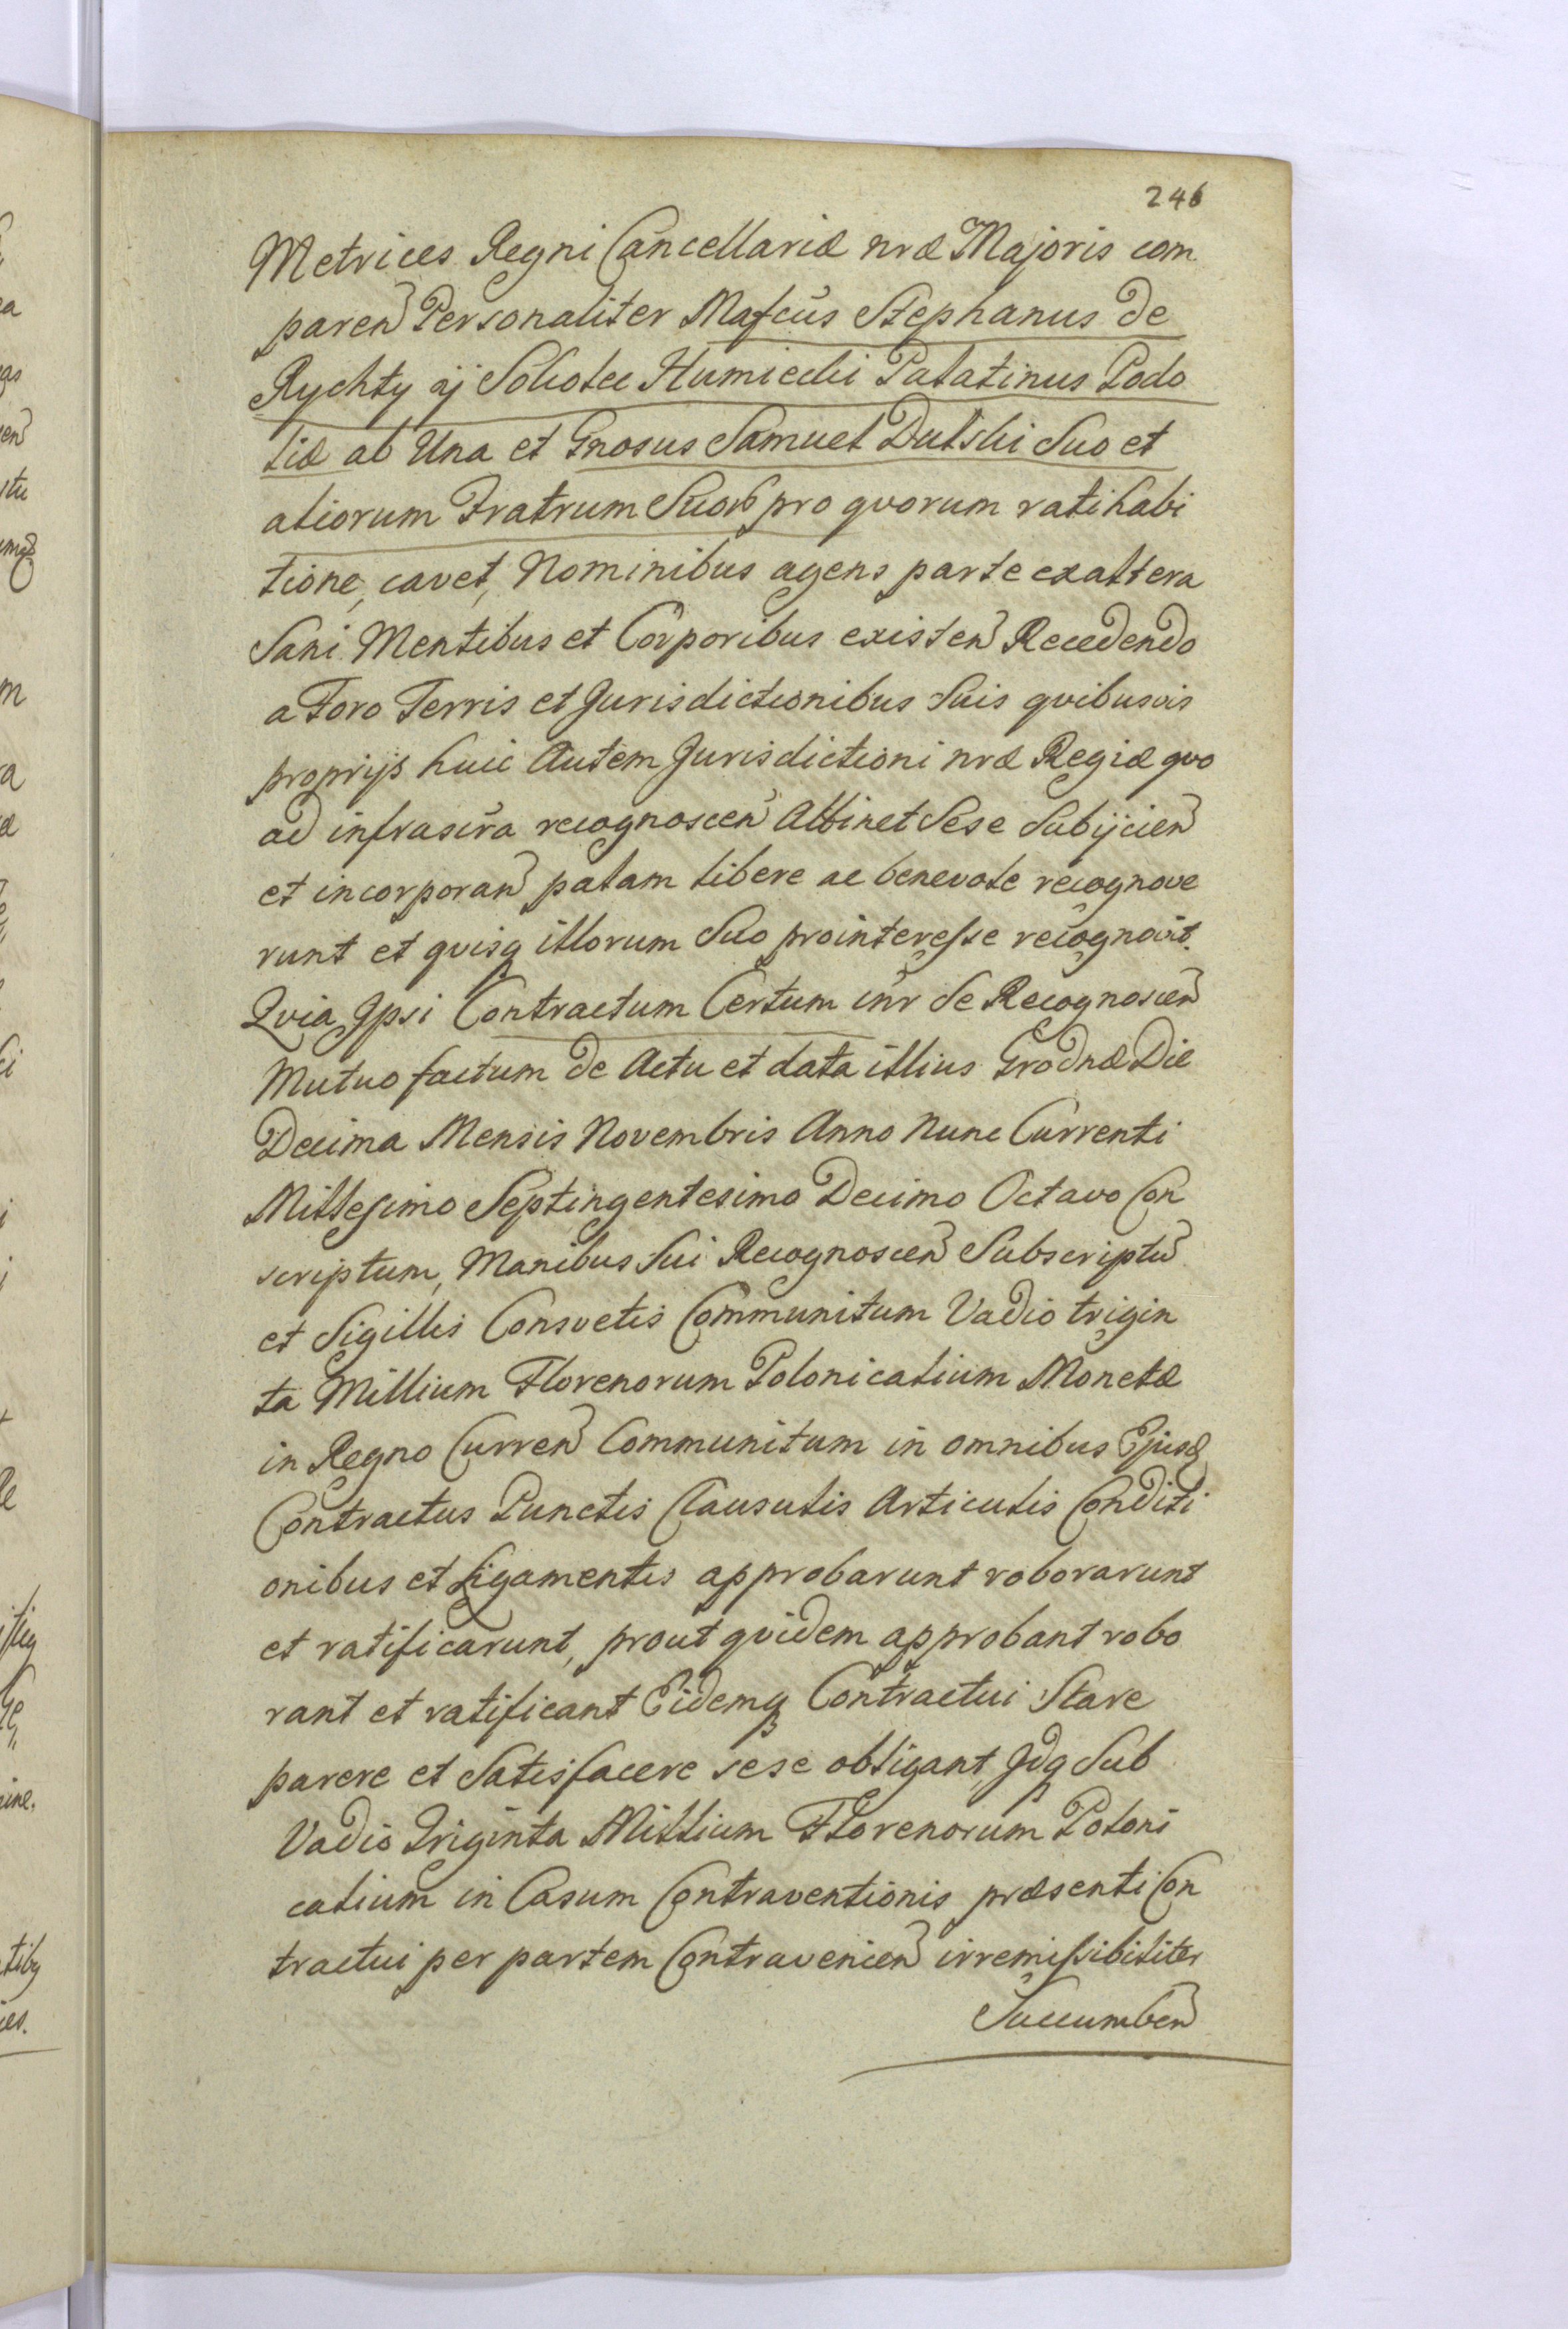 246
Metrices Regni Cancellariæ nræ Majoris com
paren Personaliter Mafcus Stephanus de
Rychty aj Humiecki Palatinus Podo
liæ ab Una et Gnosus Samuel Dulski Suo et
aliorum Fratrum Suor pro qvorum ratihabi
tione, cavet, Nominibus agens parte exaltera
Sani Mentibus et Corporibus existen Recedendo
a Foro Terris et Jurisdictionibus Suis qvibusvis
proprijs huic Autem Jurisdictioni nræ Regiæ qvo
ad infrascra recognoscen Attinet Sese Subijcien
et incorporan palam libere ac benevole recognove
runt et qvisq illorum Suo prointeresse recognovit.
Qvia Ipsi Contractum Certum inr Se Recognoscen
Mutuo factum de Actu et data illius Grodnæ Die
Decima Mensis Novembris Anno Nunc Currenti
Millesimo Septingentesimo Decimo Octavo Con
scriptum, Manibus Sui Recognoscen Subscriptu
et Sigillis Consvetis Communitum Vadio trigin
ta Millium Florenorum Polonicalium Monetæ
in Regno Curren Communitum in omnibus Ejusd
Contractus Punctis Clausulis Articulis Conditi
onibus et Ligamentis approbarunt roborarunt
et ratificarunt, prout qvidem approbant robo
rant et ratificant Eidemq Contractui Stare
parere et Satisfacere sese obligant, Idq Sub
Vadio Triginta Millium Florenorum Poloni
calium in Casum Contraventionis præsenti Con
tractui per partem Contravenien irremissibiliter
Succumben